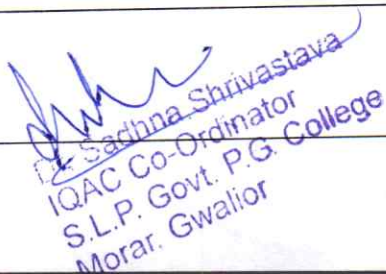 Dr. Sadhna Shrivastava
IQAC Co-Ordinator
S.L.P. Govt. P.G. College
Morar. Gwalior